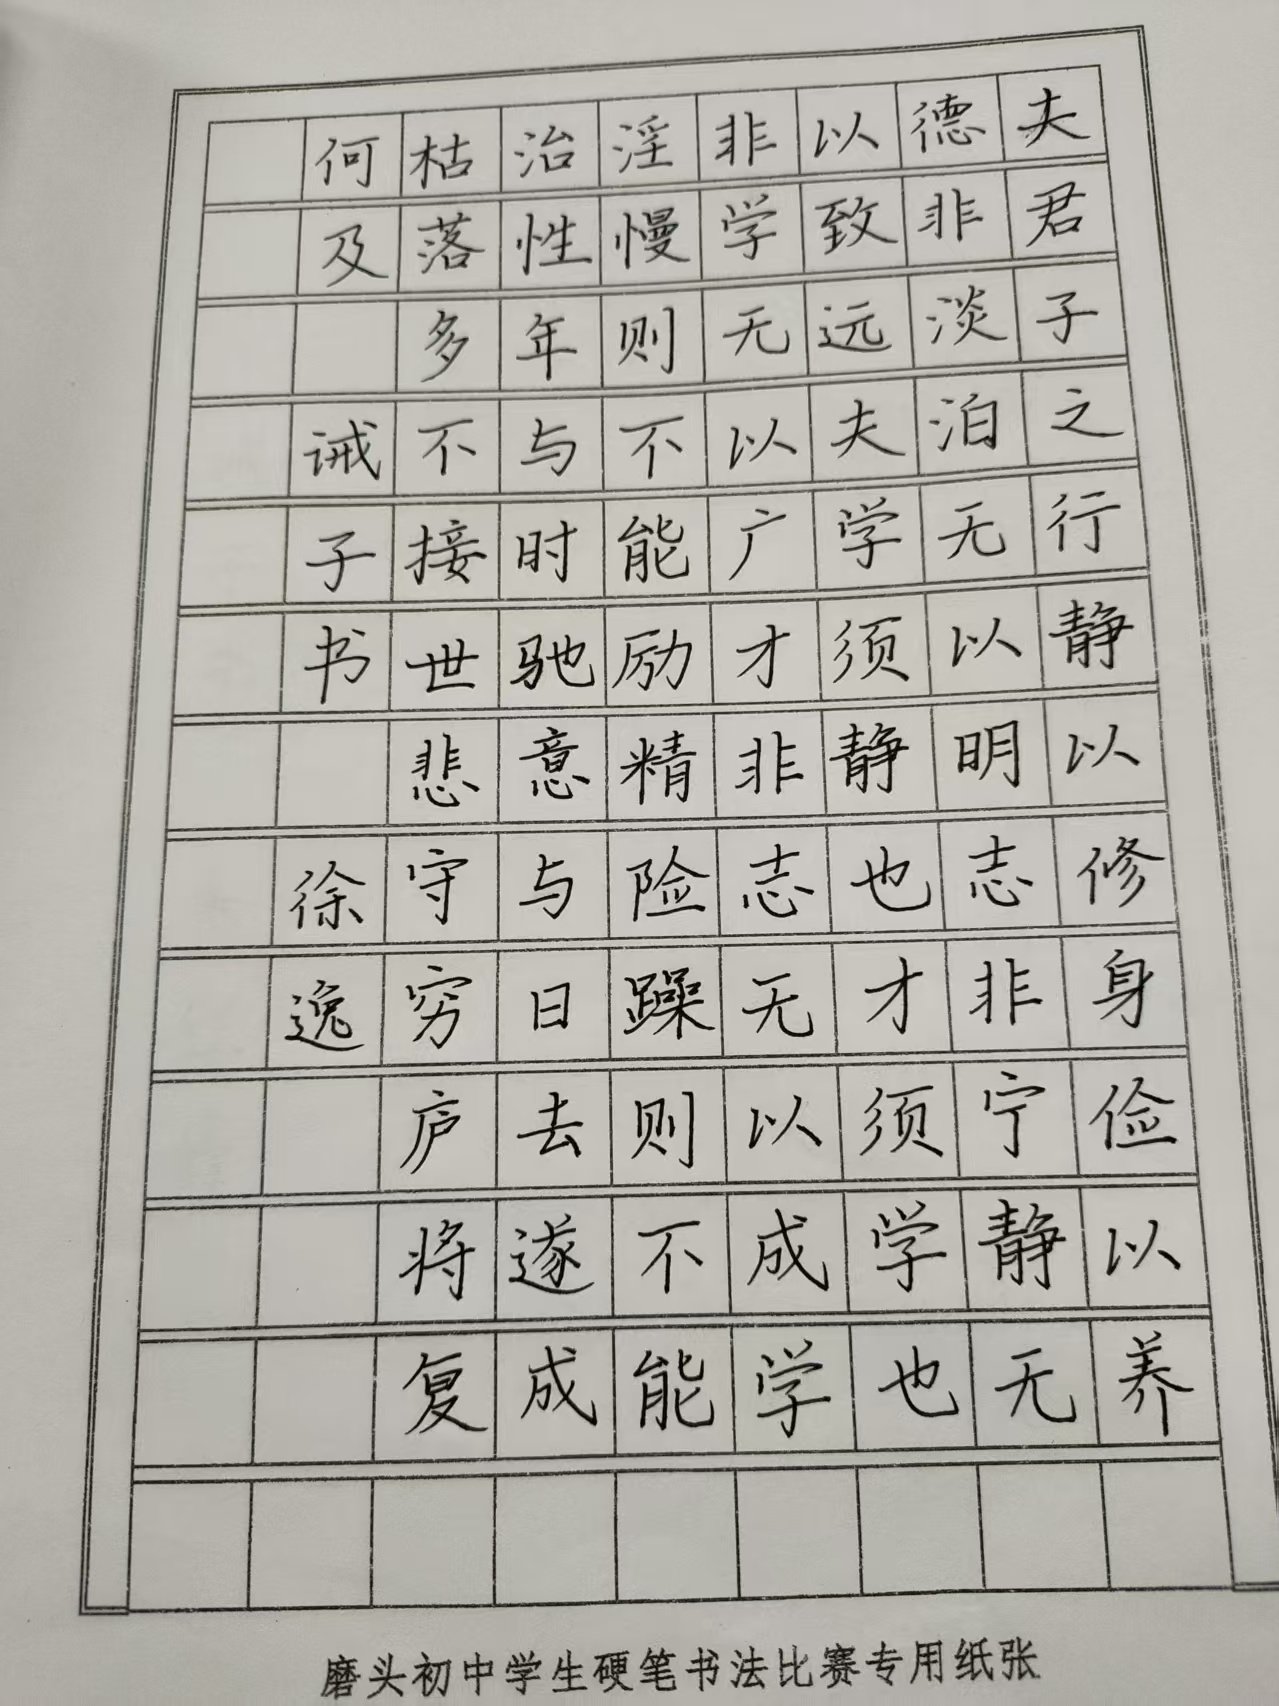 夫君子之行静以修身俭以养
德非淡泊无以明志非宁静无
以致远夫学须静也才须学也
非学无以广才非志无以成学
淫慢则不能励精险躁则不能
治性年与时驰意与日去遂成
枯落多不接世悲守穷庐将复
何及
诫子书
徐逸
磨头初中学生硬笔书法比赛专用纸张